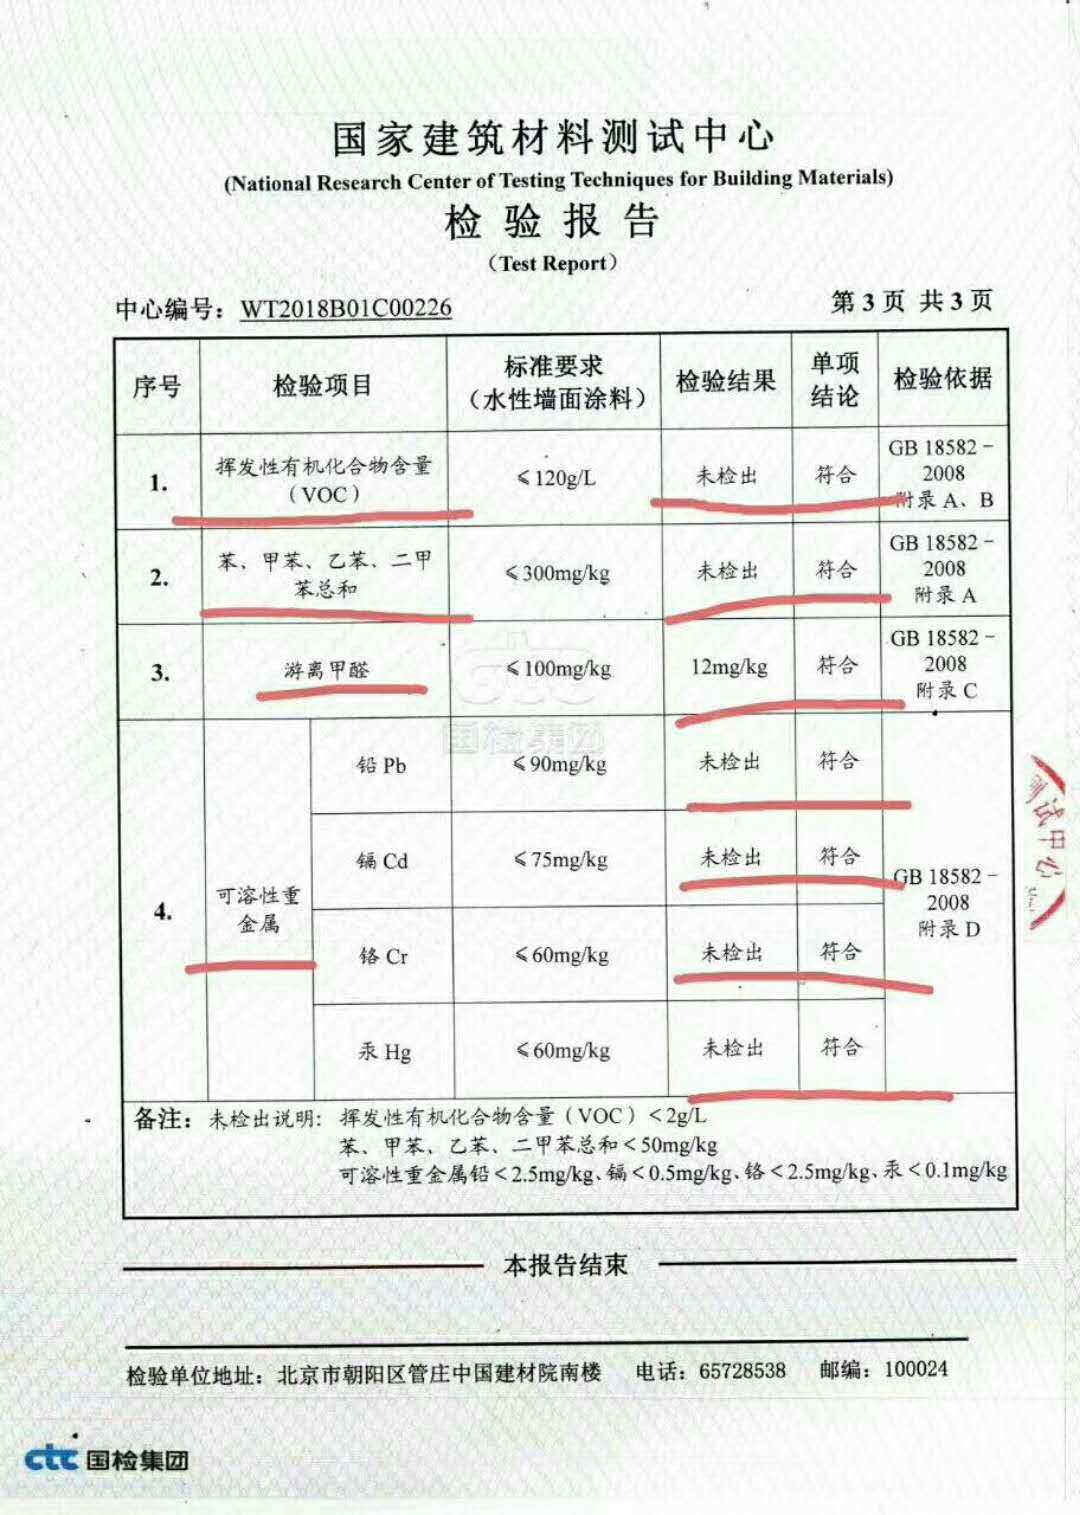 国家建筑材料测试中心
(National Research Center of Testing Techniques for Building Materials)
检验报告
（Test Report）
中心编号：WT2018B01C00226
第 3 页 共 3 页
序号
检验项目
标准要求
（水性墙面涂料）
检验结果
单项
结论
检验依据
1.
挥发性有机化合物含量
（VOC）
≤120g/L
未检出
符合
GB 18582－
2008
附录 A、B
2.
苯、甲苯、乙苯、二甲
苯总和
≤300mg/kg
未检出
符合
GB 18582－
2008
附录 A
3.
游离甲醛
≤100mg/kg
12mg/kg
符合
GB 18582－
2008
附录 C
4.
可溶性重
金属
铅 Pb
≤90mg/kg
未检出
符合
镉 Cd
≤75mg/kg
未检出
符合
铬 Cr
≤60mg/kg
未检出
符合
汞 Hg
≤60mg/kg
未检出
符合
GB 18582－
2008
附录 D
备注：未检出说明：挥发性有机化合物含量（VOC）＜2g/L
苯、甲苯、乙苯、二甲苯总和＜50mg/kg
可溶性重金属铅＜2.5mg/kg、镉＜0.5mg/kg、铬＜2.5mg/kg、汞＜0.1mg/kg
国检集团
测试中心
本报告结束
检验单位地址：北京市朝阳区管庄中国建材院南楼 电话：65728538 邮编：100024
ctc 国检集团